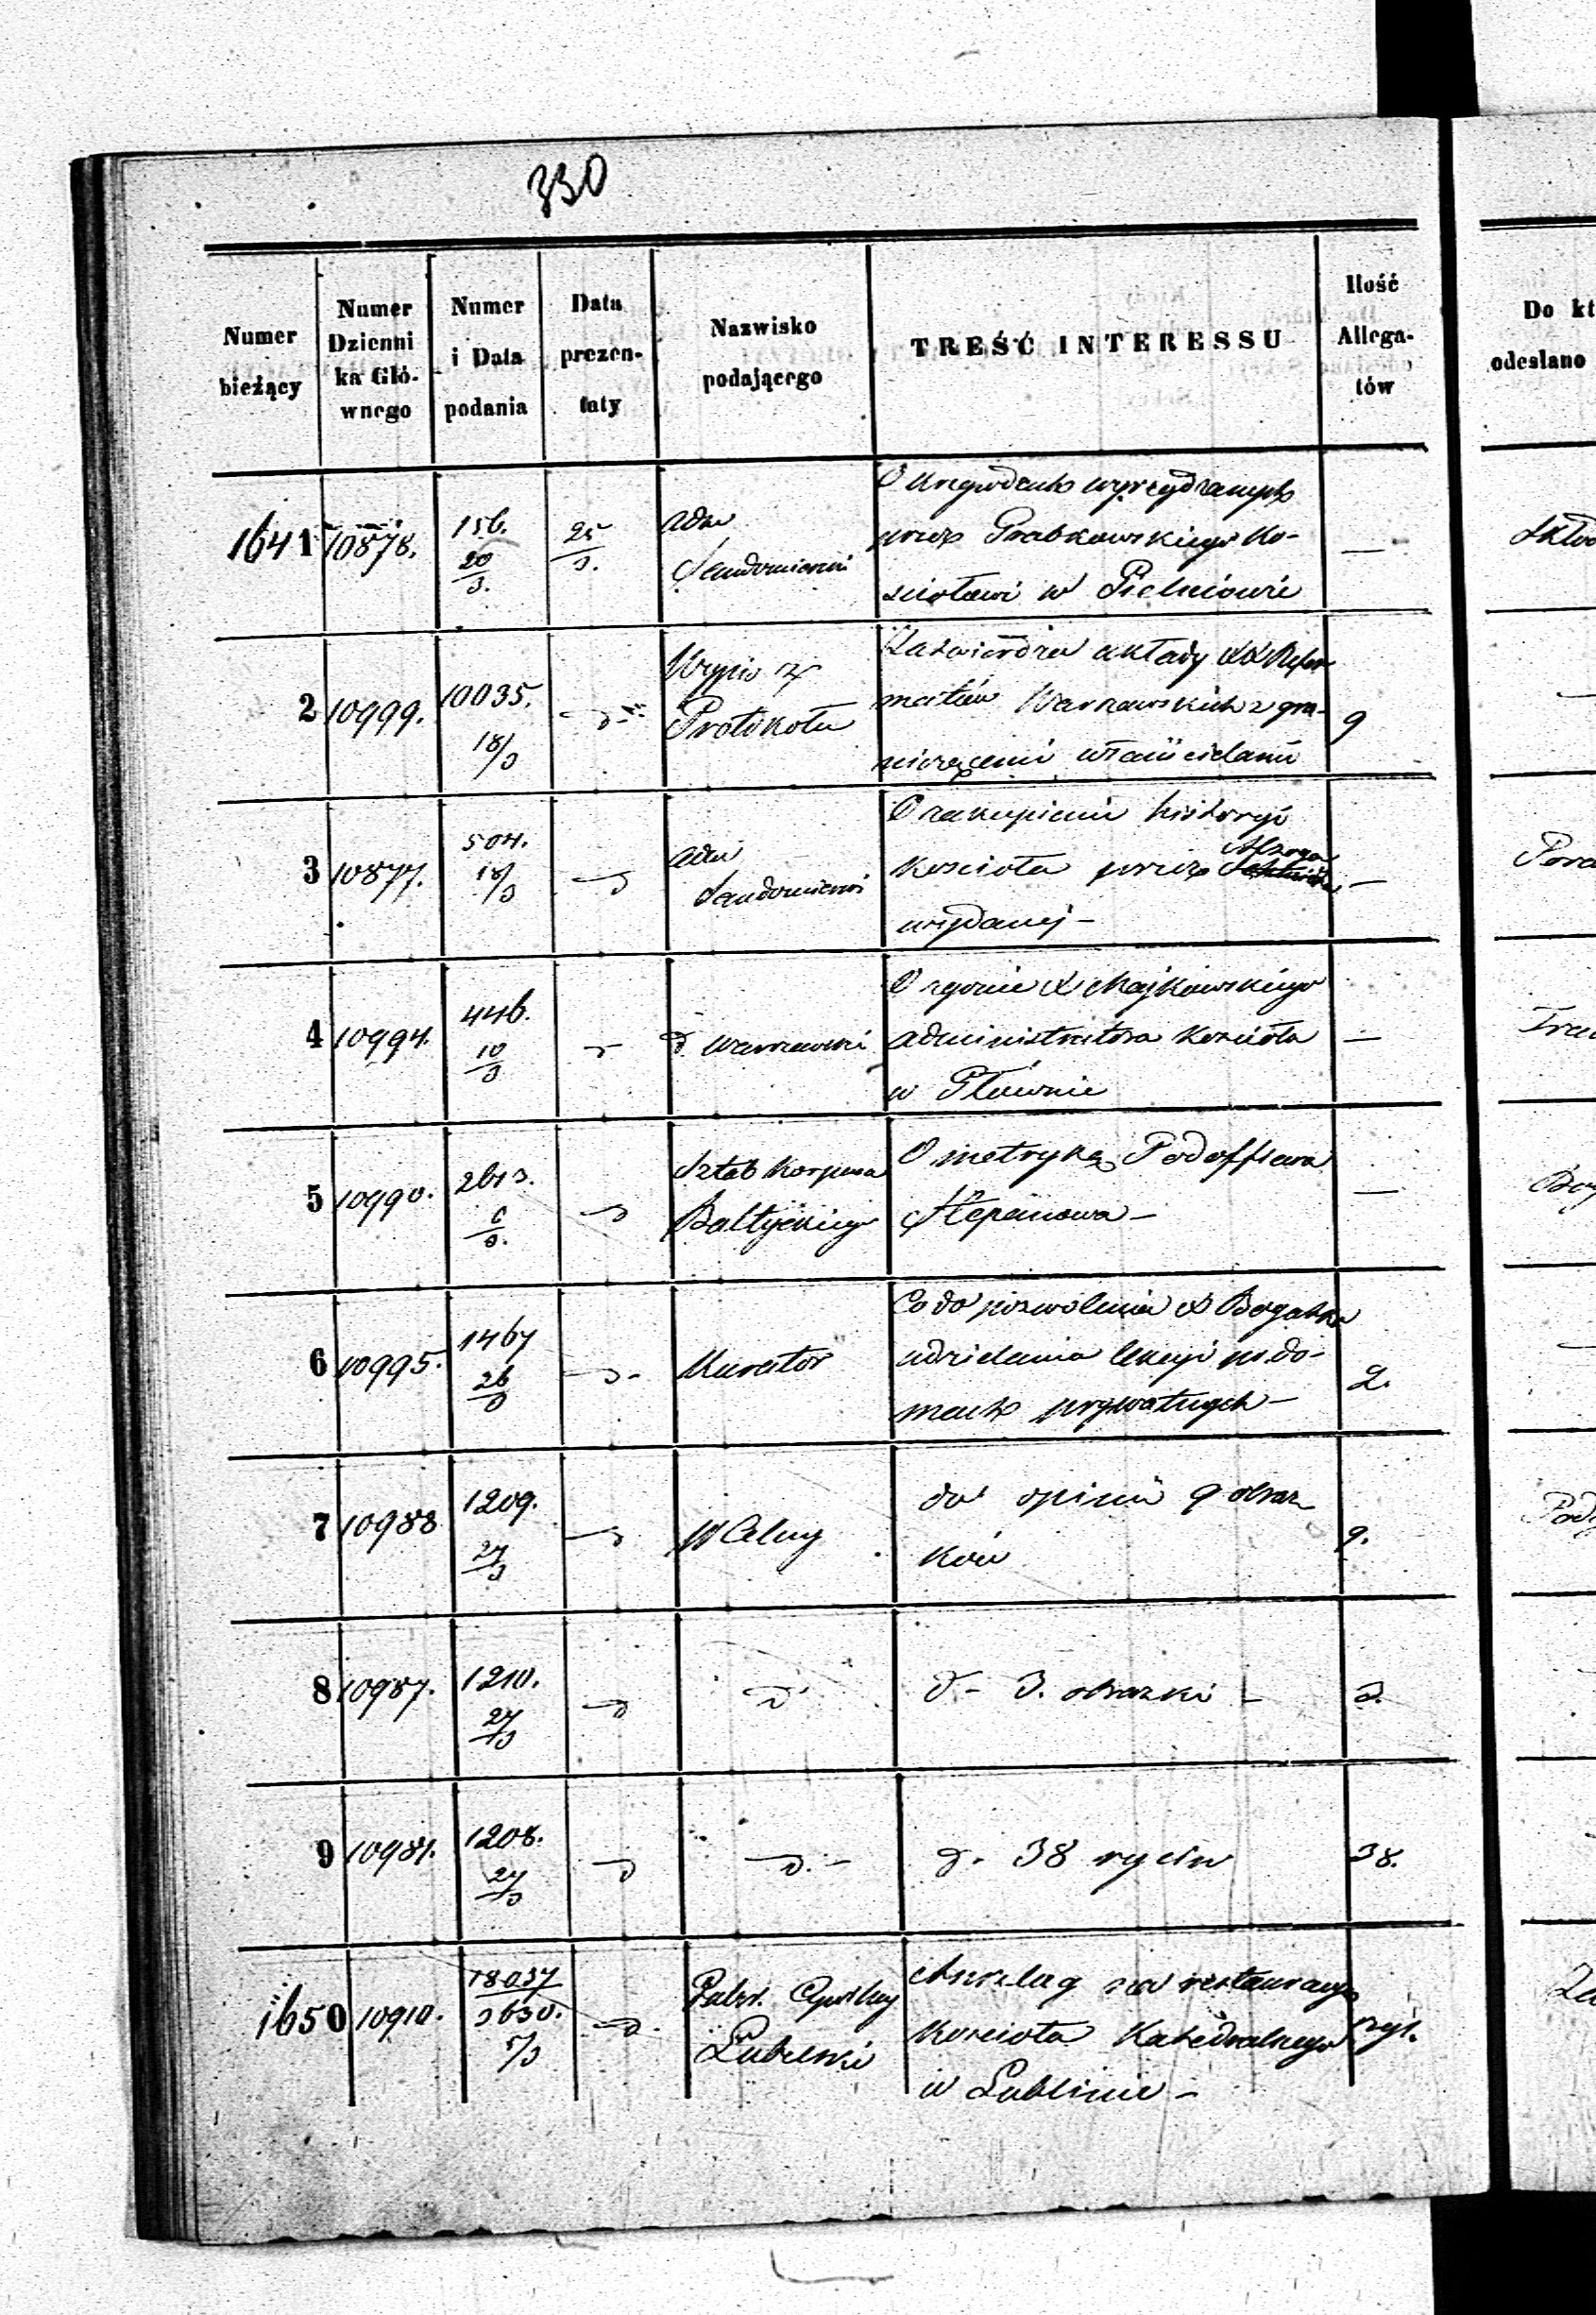 330
Numer bieżący
Numer Dzienni ka Głó- wnego
Numer i Data podania
Data prezen- taty
Nazwisko podającego
TREŚĆ INTERESSU
Ilość Allega- tów
Do kt
odesłano
1641 10878. 156. 20/3. 25/3. Adm Sandomierski
przez Grabkowskiego Ko-
ściołowi w Pielniowie
—
2 10999. 10035. 18/3 Wypis z Protokołu
Zatwierdza układy XX Refor
matów Warszawskich z gra-
niczącemi właścicielami
9
3 10877. 504. 18/3 Adm Sandomierski
O zakupieniu historyi
Kościoła przez
wydanej —
—
4 10994. 446. 10/3 d Warszawski
O zgonie X Majkowskiego
Administratora Kościoła
w Pławnie
—
5 10990. 2613. 6/3. Sztab Korpusu Bałtyckiego
O metrykę Podoffcera
Stepanowa —
—
6 10995. 1467 26/3 Kurator
Co do pozwolenia X Bogatko
udzielania lekcyi po do-
mach prywatnych —
2.
7 10988 1209. 27/3 W Celny
do opinii 9 obraz
ków
9.
8 10987. 1210. 27/3 d.
d — 3. obrazki —
3.
9 10981. 1208. 27/3 d. —
d. 38 rycin
38.
1650 10910. 18037/3630. 5/3 Gubr. Cywilny Lubelski
Anszlag na restauracyę
Kościoła Katedralnego
w Lublinie —